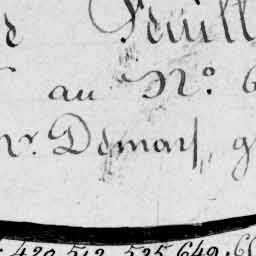 Feuill
au N.º 6
Mr. Demars, g
420, 512, 525, 649, 6